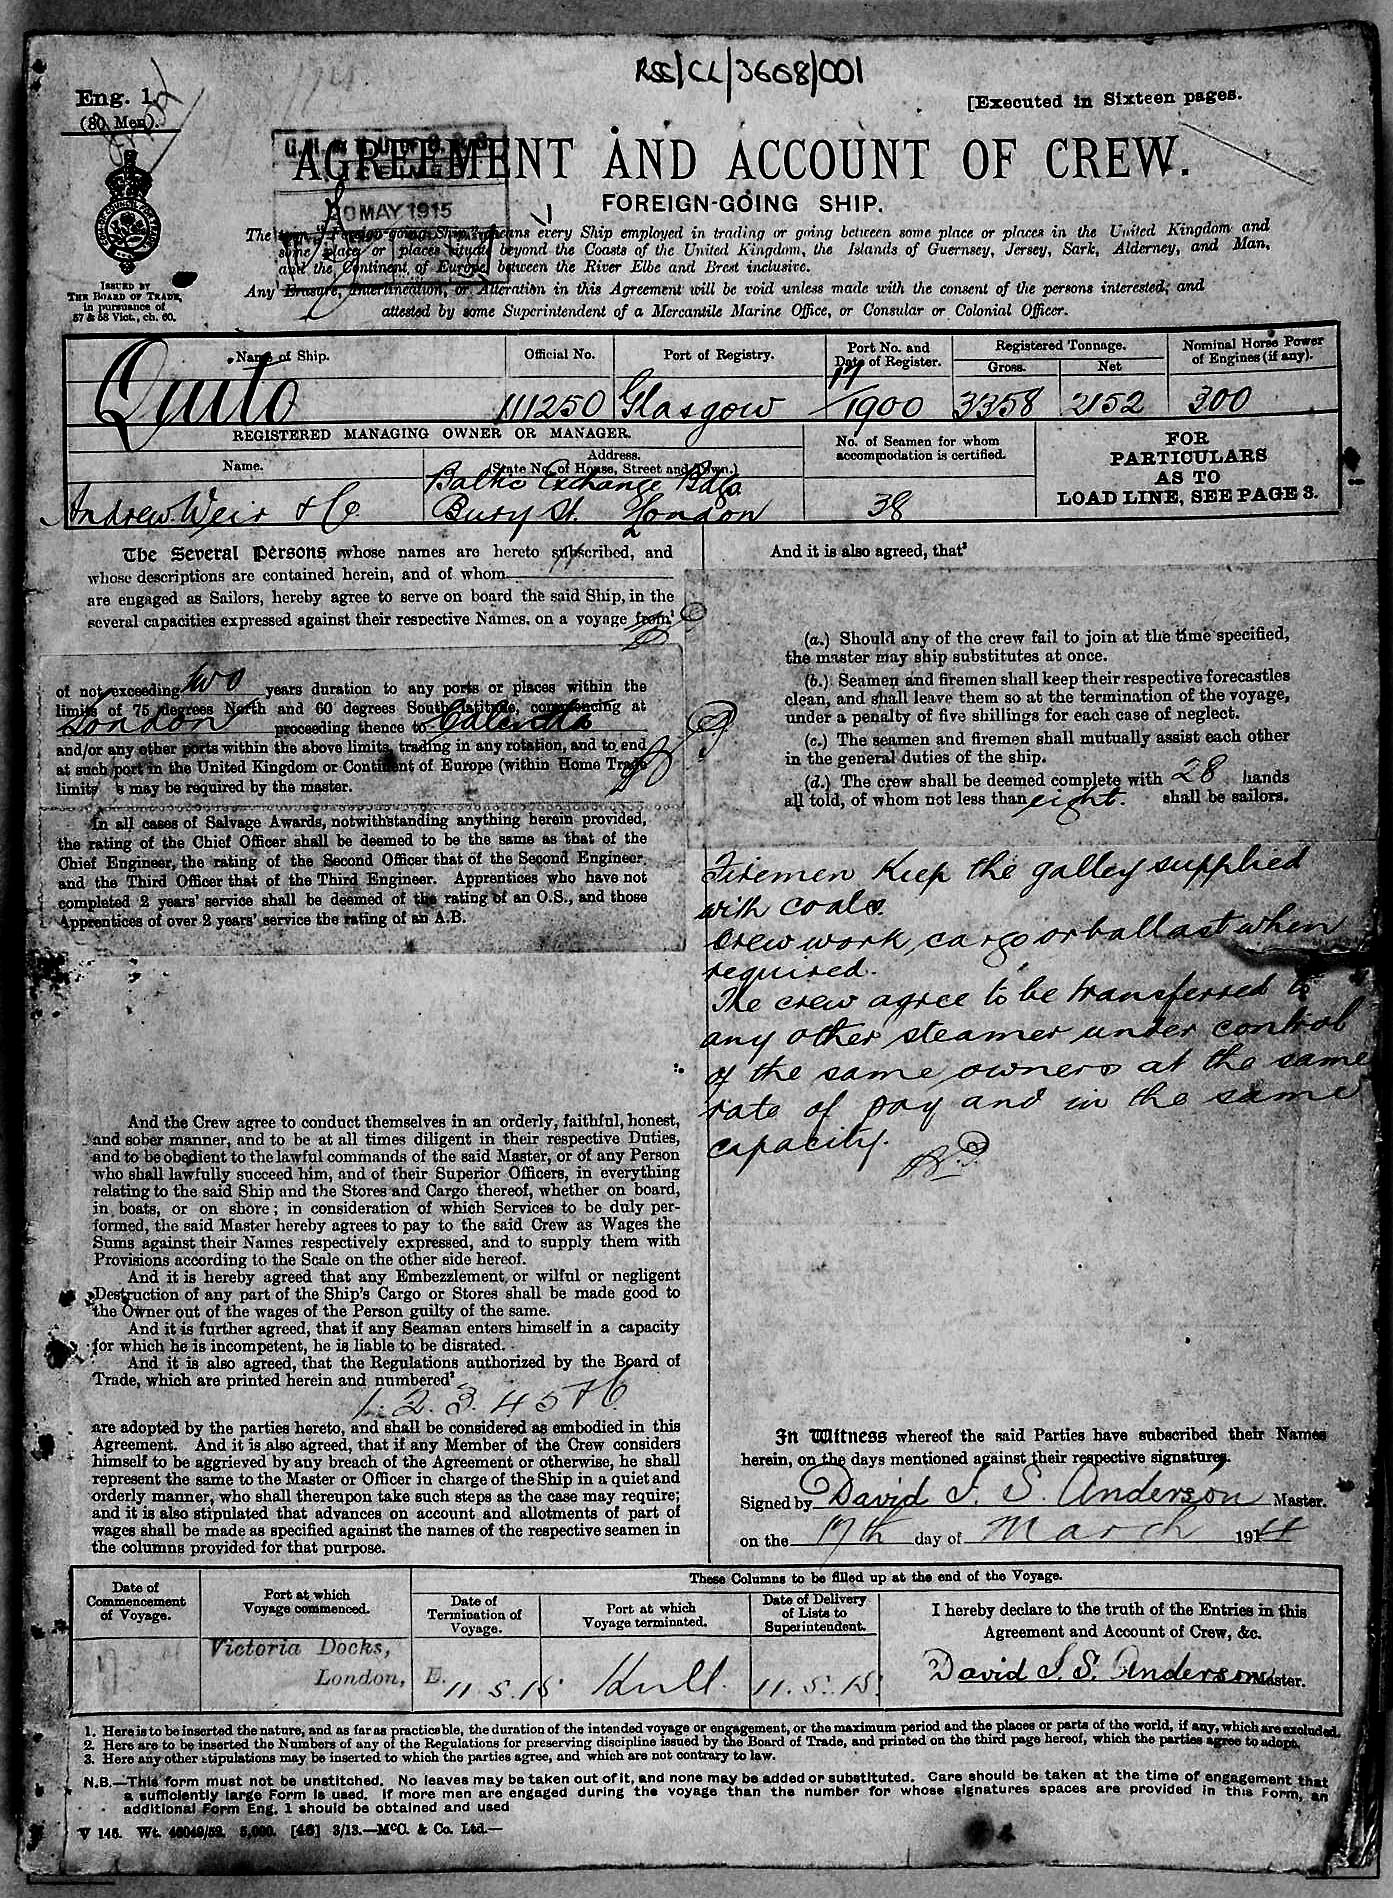 RSS/CL/3608/001
Eng. 1.
(80 Men).
[Executed in Sixteen pages.
AGREEMENT AND ACCOUNT OF CREW.
20 MAY 1915
FOREIGN-GOING SHIP.
The term "Foreign-going Ship" means every Ship employed in trading or going between some place or places in the United Kingdom and
some place or places situate beyond the Coasts of the United Kingdom, the Islands of Guernsey, Jersey, Sark, Alderney, and Man,
and the Continent of Europe between the River Elbe and Brest inclusive.
Any Erasure, Interlineation, or Alteration in this Agreement will be void unless made with the consent of the persons interested, and
attested by some Superintendent of a Mercantile Marine Office, or Consular or Colonial Officer.
ISSUED BY
THE BOARD OF TRADE,
in pursuance of
57 & 58 Vict., ch. 60.
Name of Ship.
Official No.
Port of Registry.
Port No. and
Date of Register.
Registered Tonnage.
Gross.
Net
Nominal Horse Power
of Engines (if any).
Quito
111250
Glasgow
17/1900
3358
2152
300
REGISTERED MANAGING OWNER OR MANAGER.
Name.
Address.
(State No. of House, Street and Town.)
No. of Seamen for whom
accommodation is certified.
FOR
PARTICULARS
AS TO
LOAD LINE, SEE PAGE 3.
Andrew Weir & Co
Baltic Exchange Bdgs
Bury St. London
38
The Several Persons whose names are hereto subscribed, and
whose descriptions are contained herein, and of whom
are engaged as Sailors, hereby agree to serve on board the said Ship, in the
several capacities expressed against their respective Names, on a voyage from¹
of not exceeding two years duration to any ports or places within the
limits of 75 degrees North and 60 degrees South latitude, commencing at
London proceeding thence to Calcutta
and/or any other ports within the above limits, trading in any rotation, and to end
at such port in the United Kingdom or Continent of Europe (within Home Trade
limits as may be required by the master.
In all cases of Salvage Awards, notwithstanding anything herein provided,
the rating of the Chief Officer shall be deemed to be the same as that of the
Chief Engineer, the rating of the Second Officer that of the Second Engineer,
and the Third Officer that of the Third Engineer. Apprentices who have not
completed 2 years' service shall be deemed of the rating of an O.S., and those
Apprentices of over 2 years' service the rating of an A.B.
And the Crew agree to conduct themselves in an orderly, faithful, honest,
and sober manner, and to be at all times diligent in their respective Duties,
and to be obedient to the lawful commands of the said Master, or of any Person
who shall lawfully succeed him, and of their Superior Officers, in everything
relating to the said Ship and the Stores and Cargo thereof, whether on board,
in boats, or on shore; in consideration of which Services to be duly per-
formed, the said Master hereby agrees to pay to the said Crew as Wages the
Sums against their Names respectively expressed, and to supply them with
Provisions according to the Scale on the other side hereof.
And it is hereby agreed that any Embezzlement or wilful or negligent
Destruction of any part of the Ship's Cargo or Stores shall be made good to
the Owner out of the wages of the Person guilty of the same.
And it is further agreed, that if any Seaman enters himself in a capacity
for which he is incompetent, he is liable to be disrated.
And it is also agreed, that the Regulations authorized by the Board of
Trade, which are printed herein and numbered²
1. 2. 3. 4 5 + 6
are adopted by the parties hereto, and shall be considered as embodied in this
Agreement. And it is also agreed, that if any Member of the Crew considers
himself to be aggrieved by any breach of the Agreement or otherwise, he shall
represent the same to the Master or Officer in charge of the Ship in a quiet and
orderly manner, who shall thereupon take such steps as the case may require;
and it is also stipulated that advances on account and allotments of part of
wages shall be made as specified against the names of the respective seamen in
the columns provided for that purpose.
And it is also agreed, that³
(a.) Should any of the crew fail to join at the time specified,
the master may ship substitutes at once.
(b.) Seamen and firemen shall keep their respective forecastles
clean, and shall leave them so at the termination of the voyage,
under a penalty of five shillings for each case of neglect.
(c.) The seamen and firemen shall mutually assist each other
in the general duties of the ship.
(d.) The crew shall be deemed complete with 28 hands
all told, of whom not less than eight. shall be sailors.
Firemen keep the galley supplied
with coals.
Crew work cargo or ballast when
required.
The crew agree to be transferred to
any other steamer under control
of the same owners at the same
rate of pay and in the same
capacity.
In Witness whereof the said Parties have subscribed their Names
herein, on the days mentioned against their respective signatures.
Signed by David J. S. Anderson Master.
on the 17th day of March 1914
Date of
Commencement
of Voyage.
Port at which
Voyage commenced.
These Columns to be filled up at the end of the Voyage.
Date of
Termination of
Voyage.
Port at which
Voyage terminated.
Date of Delivery
of Lists to
Superintendent.
I hereby declare to the truth of the Entries in this
Agreement and Account of Crew, &c.
Victoria Docks,
London, E.
11.5.15
Hull.
11.5.15
David J. S. Anderson Master.
1. Here is to be inserted the nature, and as far as practicable, the duration of the intended voyage or engagement, or the maximum period and the places or parts of the world, if any, which are excluded.
2. Here are to be inserted the Numbers of any of the Regulations for preserving discipline issued by the Board of Trade, and printed on the third page hereof, which the parties agree to adopt.
3. Here any other stipulations may be inserted to which the parties agree, and which are not contrary to law.
N.B.—This form must not be unstitched. No leaves may be taken out of it, and none may be added or substituted. Care should be taken at the time of engagement that
a sufficiently large Form is used. If more men are engaged during the voyage than the number for whose signatures spaces are provided in this Form, an
additional Form Eng. 1 should be obtained and used
V 145. Wt. 46049/52. 5,000. [46] 3/13.—McC. & Co. Ltd.—